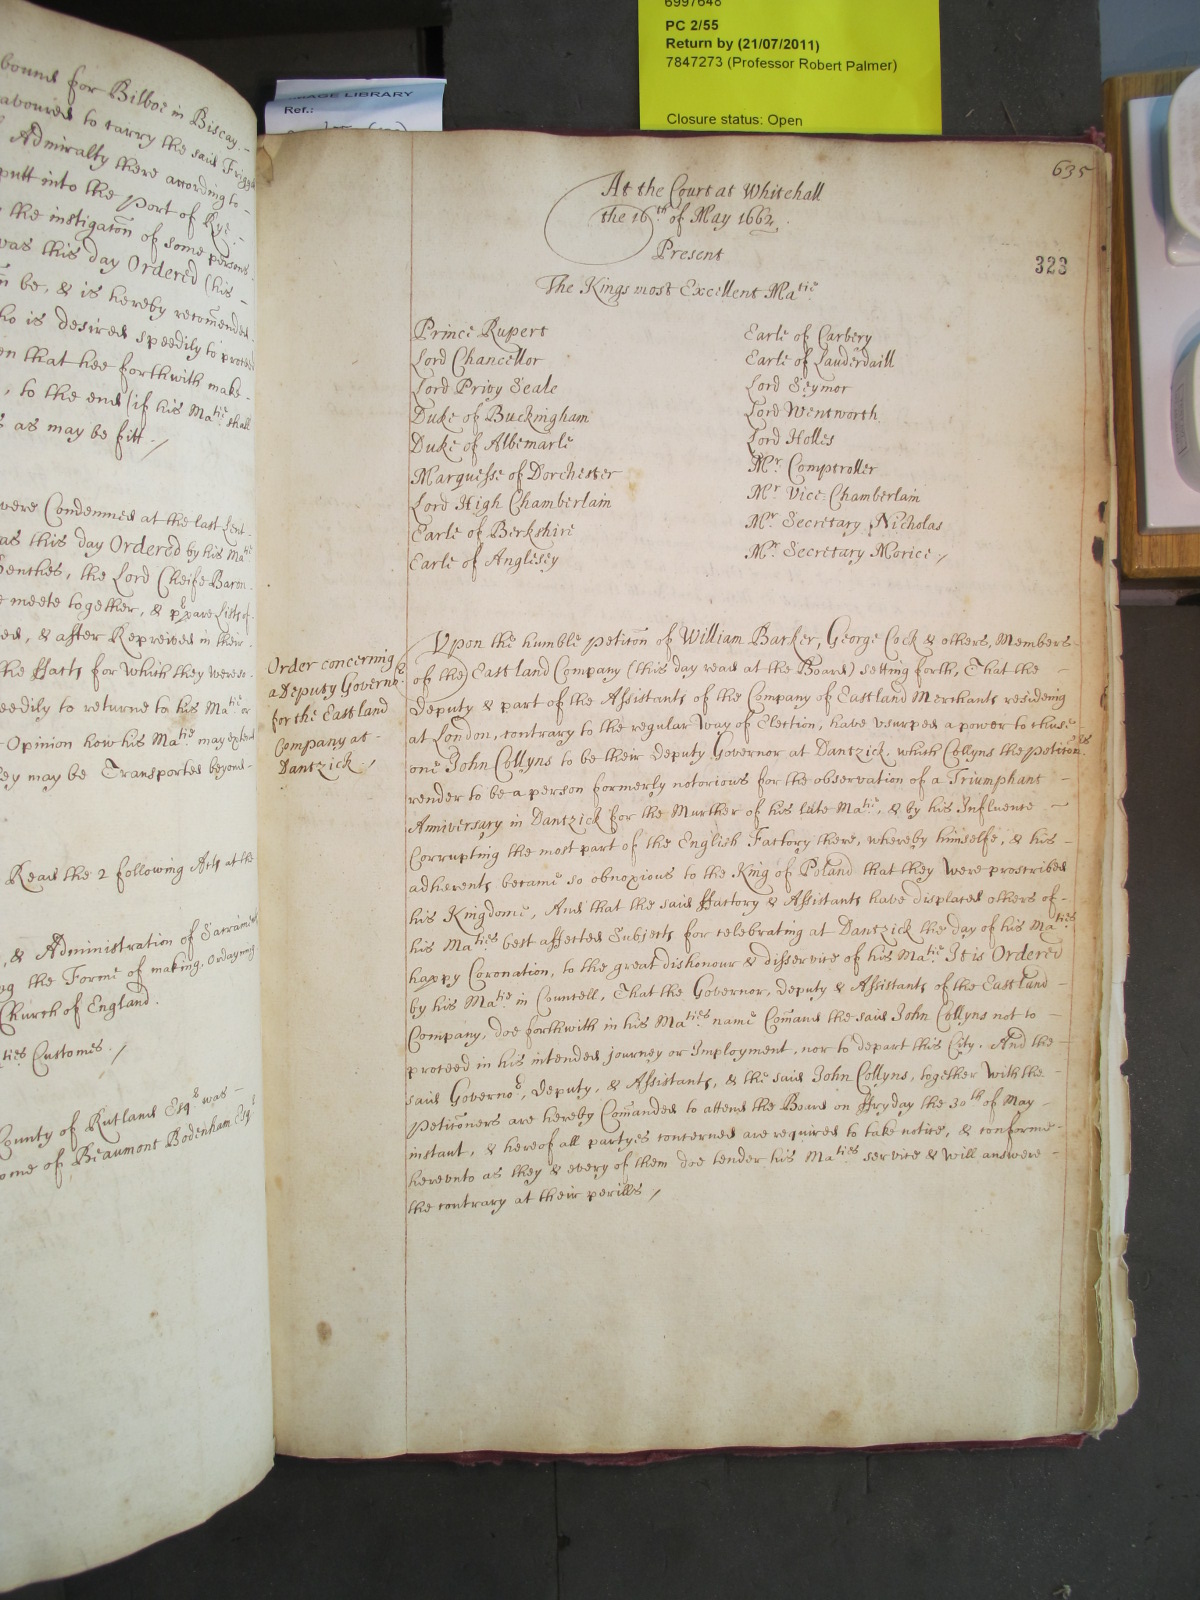 6997648
PC 2/55
Return by (21/07/2011)
7847273 (Professor Robert Palmer)
Closure status: Open
LIBRARY
Ref.:
bound for Bilboe in Biscay. -
avoured to carry the said
Admiralty there according to -
putt into the Port of Rye. -
the instigatōn of some persons
was this day Ordered (his -
be, & is hereby recom̄ended
ho is desired speedily to
en that hee forthwith make -
, to the end (if his Ma:tie shall
s as may be fitt ./
were Condemned at the last Lent
as this day Ordered by his Ma:tie
the Lord Cheife Baron
meete together, & Lists of
ed, & after Repreived in their
the ffacts for which they were
eedily to returne to his Ma:tie or
Opinion how his Ma:tie may extend
ey may be Transported beyond -
Read the 2 following Acts at the
, & Administration of
the Forme of making, Ordayning
Church of England.
ties Customes ./
County of Rutland Esq:r was -
ome of Beaumont Bodenham Esq:r
635
At the Court at Whitehall
the 16th of May 1662.
Present
323
The Kings most Excellent Ma:tie
Prince Rupert
Lord Chancellor
Lord Privy Seale
Duke of Buckingham
Duke of Albemarle
Marquesse of Dorchester
Lord High Chamberlain
Earle of Berkshire
Earle of Anglesey
Earle of Carbery
Earle of Lauderdaill
Lord Seymor
Lord Wentworth
Lord Holles
Mr Comptroller
Mr Vice Chamberlain
Mr Secretary Nicholas
Mr Secretary Morice /
Order concerning
a Deputy Governor
for the Eastland
Company at -
Dantzick ./
Upon the humble Petitōn of William Barker, George Cock & others, Members
of the Eastland Company (this day read at the Board) setting forth, That the -
Deputy & part of the Assistants of the Company of Eastland Merchants resideing
at London, contrary to the regular Way of Election, have usurped a power to chuse
one John Collyns to be their Deputy Governor at Dantzick, which Collyns the petitionrs
render to be a person formerly notorious for the observation of a Triumphant -
Anniversary in Dantzick for the Murther of his late Ma:tie, & by his Influence -
Corrupting the most part of the English Factory there, whereby himselfe, & his -
adherents became so obnoxious to the King of Poland that they were proscribed
his Kingdome, And that the said ffactory & Assistants have displaced others of -
his Ma:ties best affected Subjects for celebrating at Dantzick the day of his Ma:ties
happy Coronation, to the great dishonour & disservice of his Ma:tie It is Ordered
by his Ma:tie in Councell, That the Governor, Deputy & Assistants of the Eastland -
Company, doe forthwith in his Ma:ties name Com̄and the said John Collyns not to -
proceed in his intended journey or Imployment, nor to depart this City. And the -
said Governor, Deputy, & Assistants, & the said John Collyns, together With the -
Petitioners are hereby Com̄anded to attend the Board on ffryday the 30th of May -
instant, & hereof all partyes concerned are required to take notice, & conforme -
hereunto as they & every of them doe tender his Ma:ties service & will answere -
the contrary at their perills /